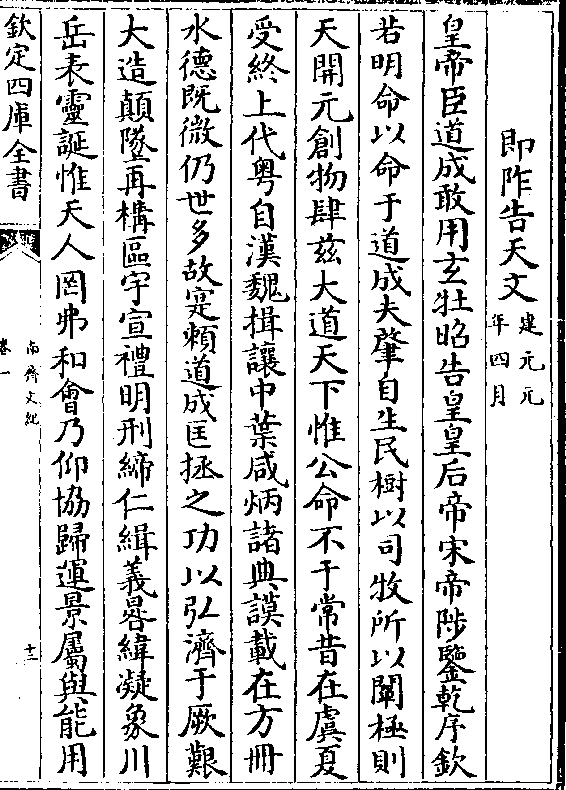 即阼告天文建元元年四月
皇帝臣道成敢用玄牡昭告皇皇后帝宋帝陟鑒乾序欽
若明命以命于道成夫肇自生民樹以司牧所以闡極則
天開元創物肆茲大道天下惟公命不于常昔在虞夏
受終上代粤自漢魏揖讓中葉咸炳諸典謨載在方冊
水德既微仍世多故寔頼道成匡拯之功以弘濟于厥艱
大造顛墜再構區宇宣禮明刑締仁緝義晷緯凝象川
岳表靈誕惟天人罔弗和會乃仰協歸運景屬與能用
欽定四庫全書
南齊文紀
卷一
十三